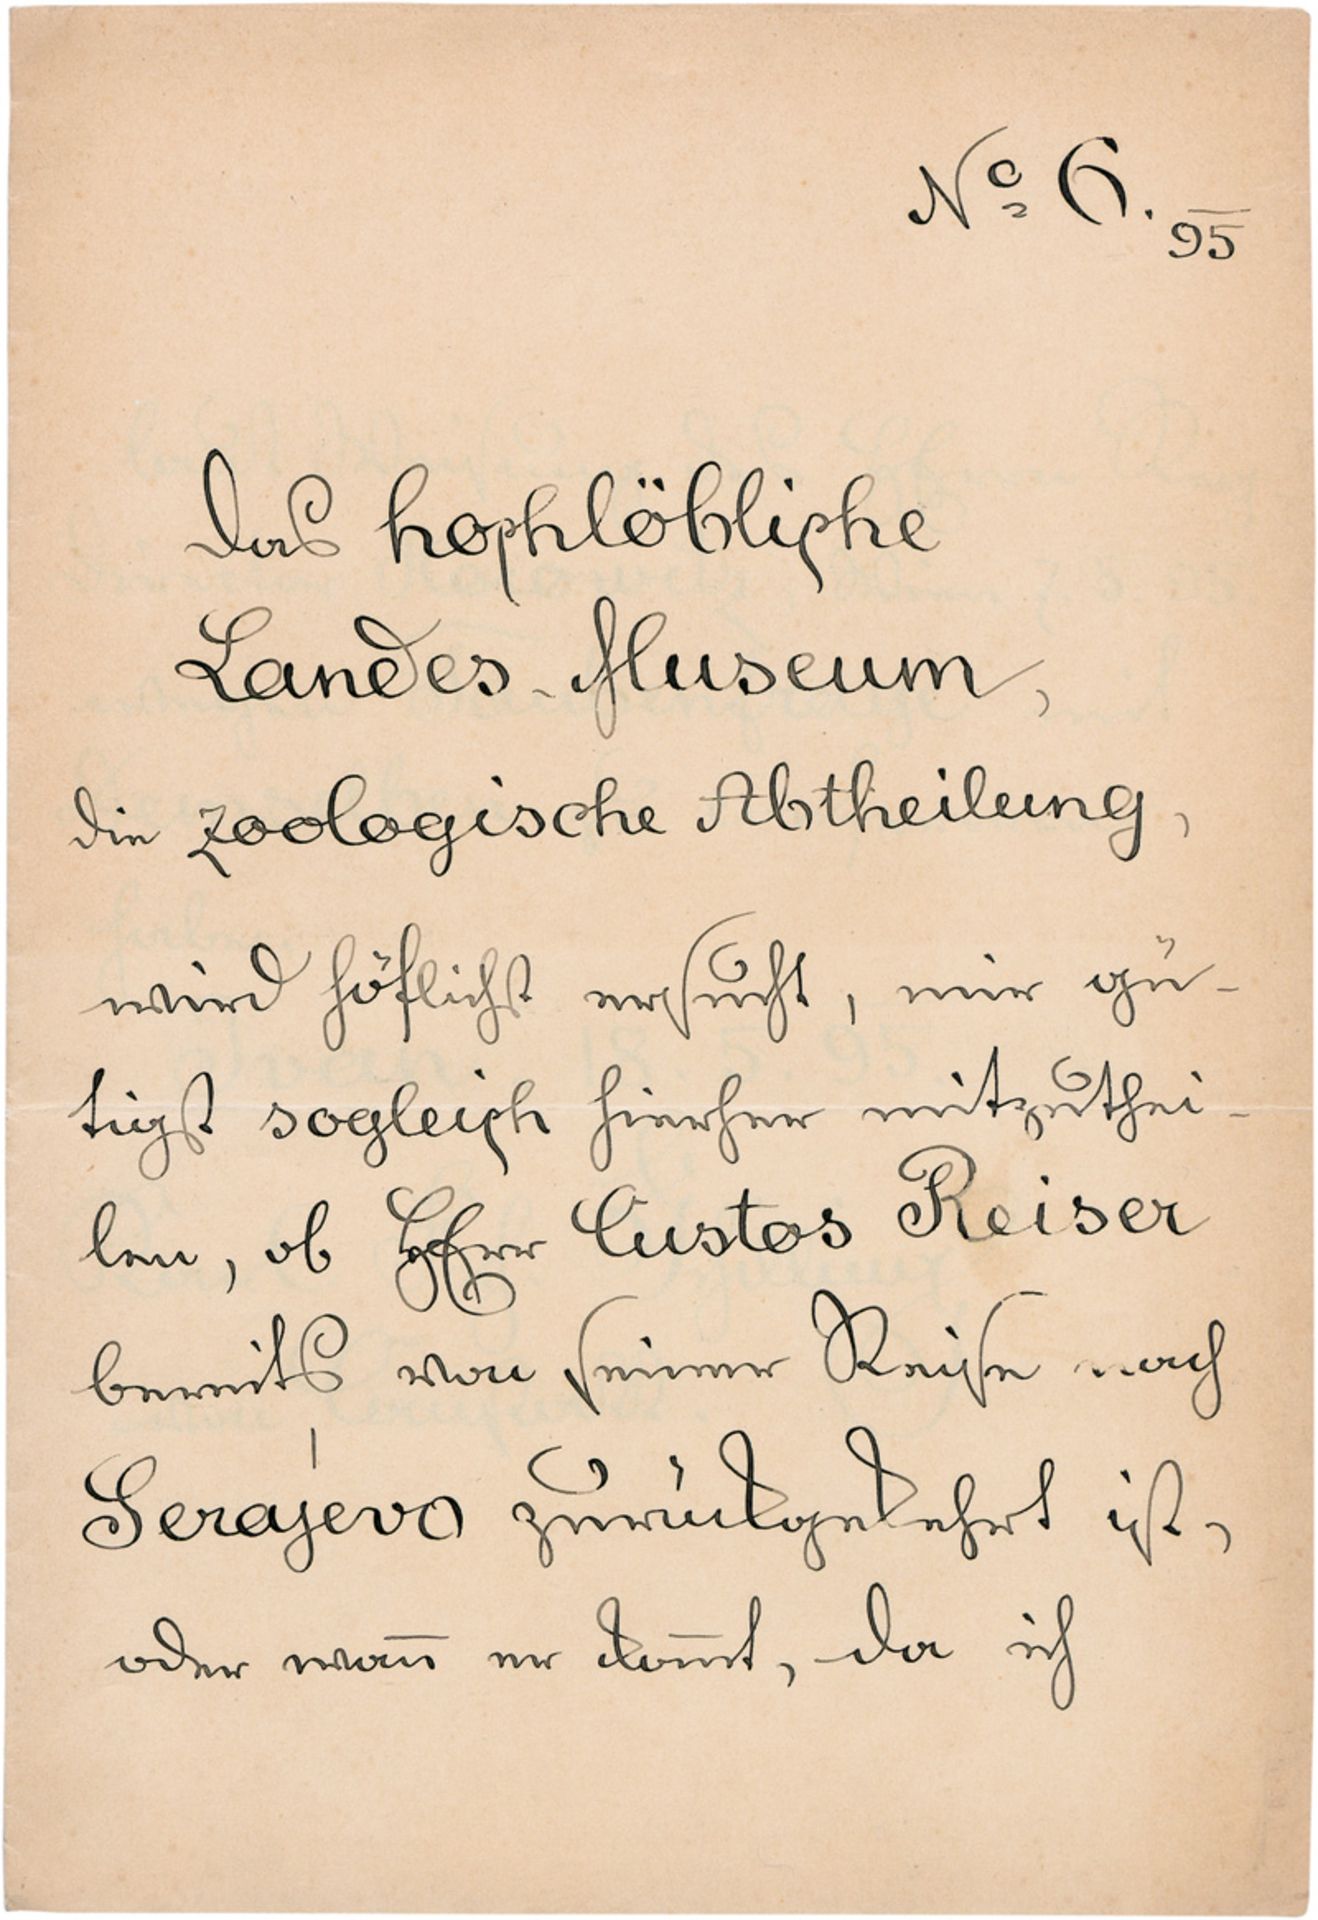 No 6. /95
Das hochlöbliche
Landes-Museum,
die zoologische Abtheilung,
wird höflichst ersucht, mir gü-
tigst sogleich hierher mitzuthei-
len, ob Herr Custos Reiser
bereits von seiner Reise nach
Serajevo zurückgekehrt ist,
oder wan̄ er kom̄t, da ich